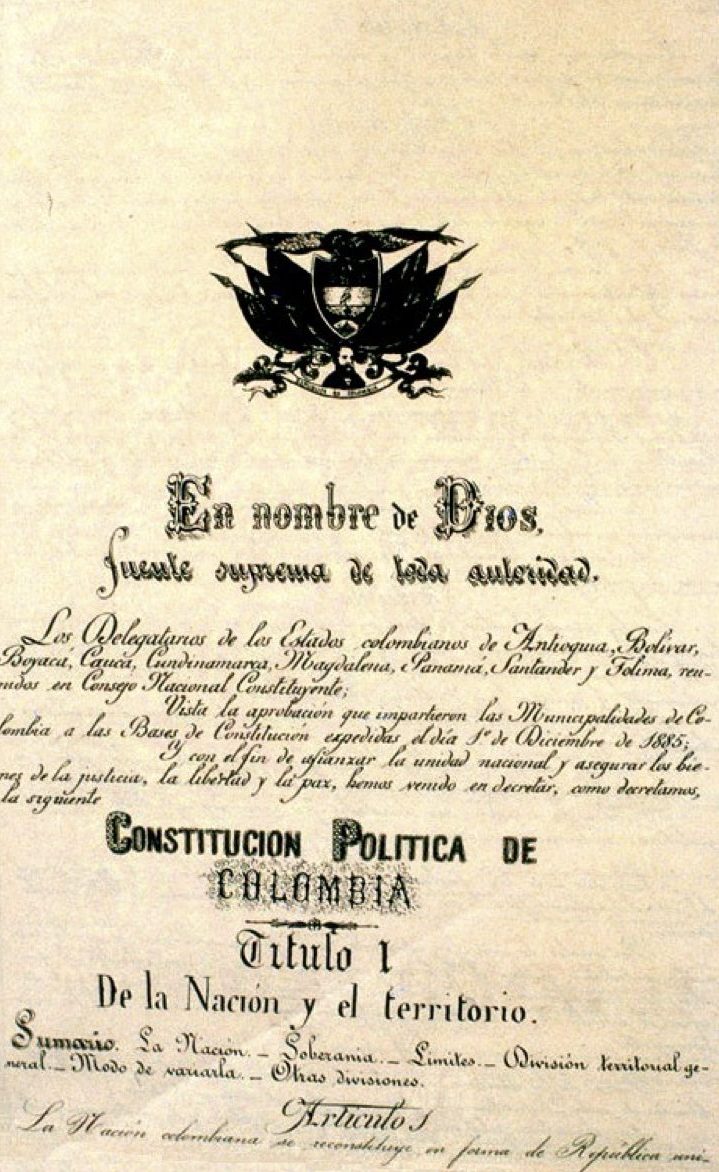 En nombre de Dios,
fuente suprema de toda autoridad.
Los Delegatarios de los Estados colombianos de Antioquia, Bolívar,
Boyacá, Cauca, Cundinamarca, Magdalena, Panamá, Santander y Tolima, reu-
nidos en Consejo Nacional Constituyente;
Vista la aprobación que impartieron las Municipalidades de Co-
lombia a las Bases de Constitución expedidas el día 1º de Diciembre de 1885;
y con el fin de afianzar la unidad nacional y asegurar los bie-
nes de la justicia, la libertad y la paz, hemos venido en decretar, como decretamos,
la siguiente
CONSTITUCION POLITICA DE
COLOMBIA
Titulo 1
De la Nación y el territorio.
Sumario. La Nación. – Soberania. – Limites. – División territorial ge-
neral. – Modo de variarla. – Otras divisiones.
Artículo 1
La Nación colombiana se reconstituye en forma de República uni-